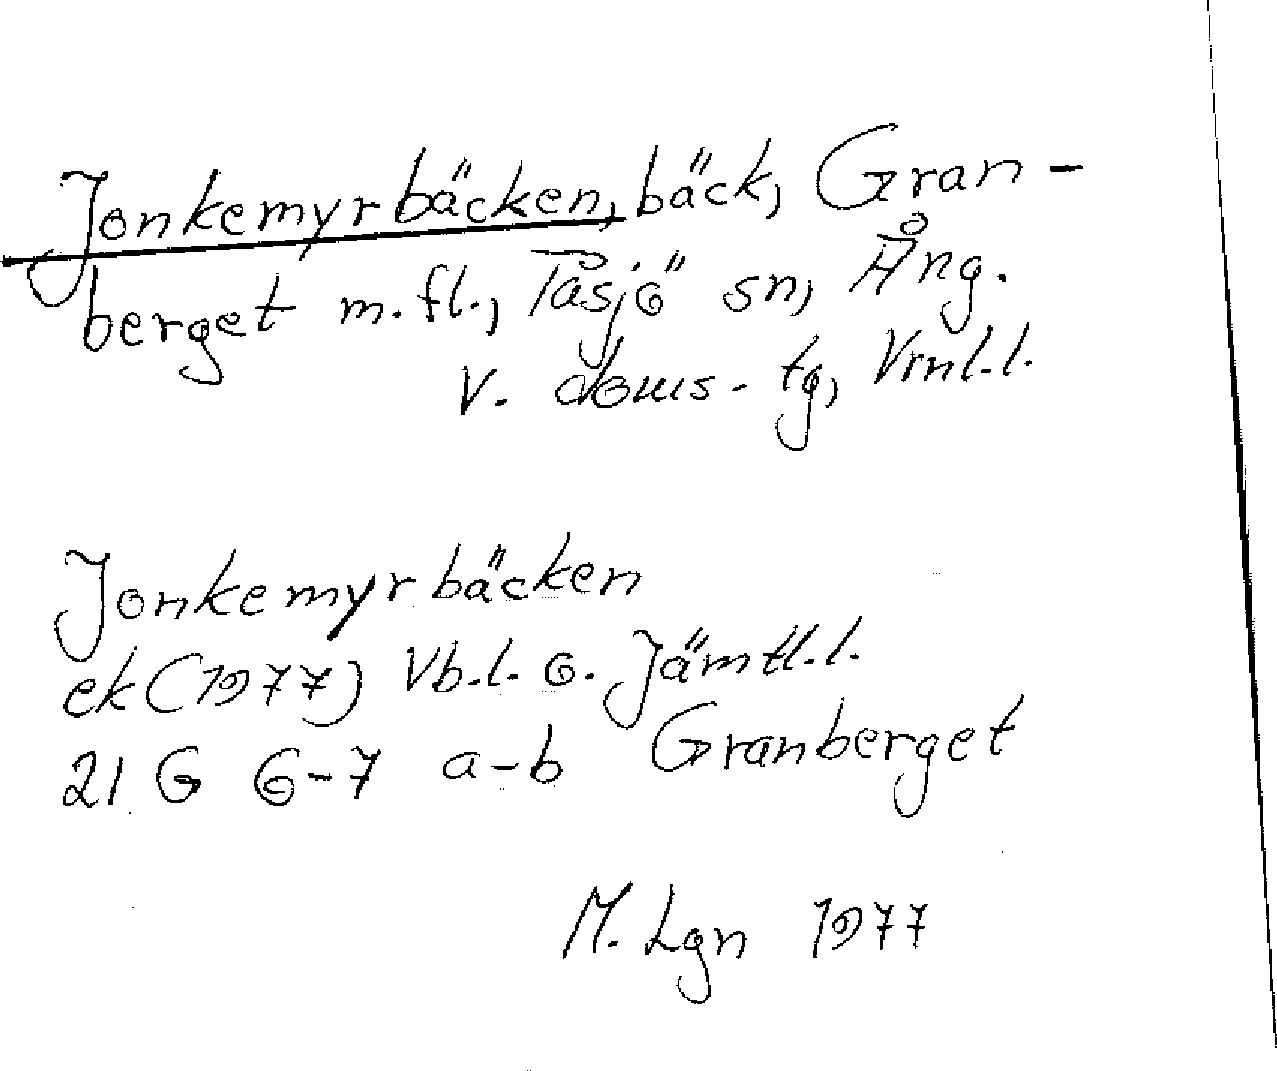 Jonkemyrbäcken, bäck, Gran-
berget m.fl., Tåsjö sn, Ång.
V. doms-tg, Vrnl.l.
Jonkemyrbäcken
ek (1977) Vb.l. o. Jämtl.l.
21 G 6-7 a-b Granberget
M. Lgn 1977